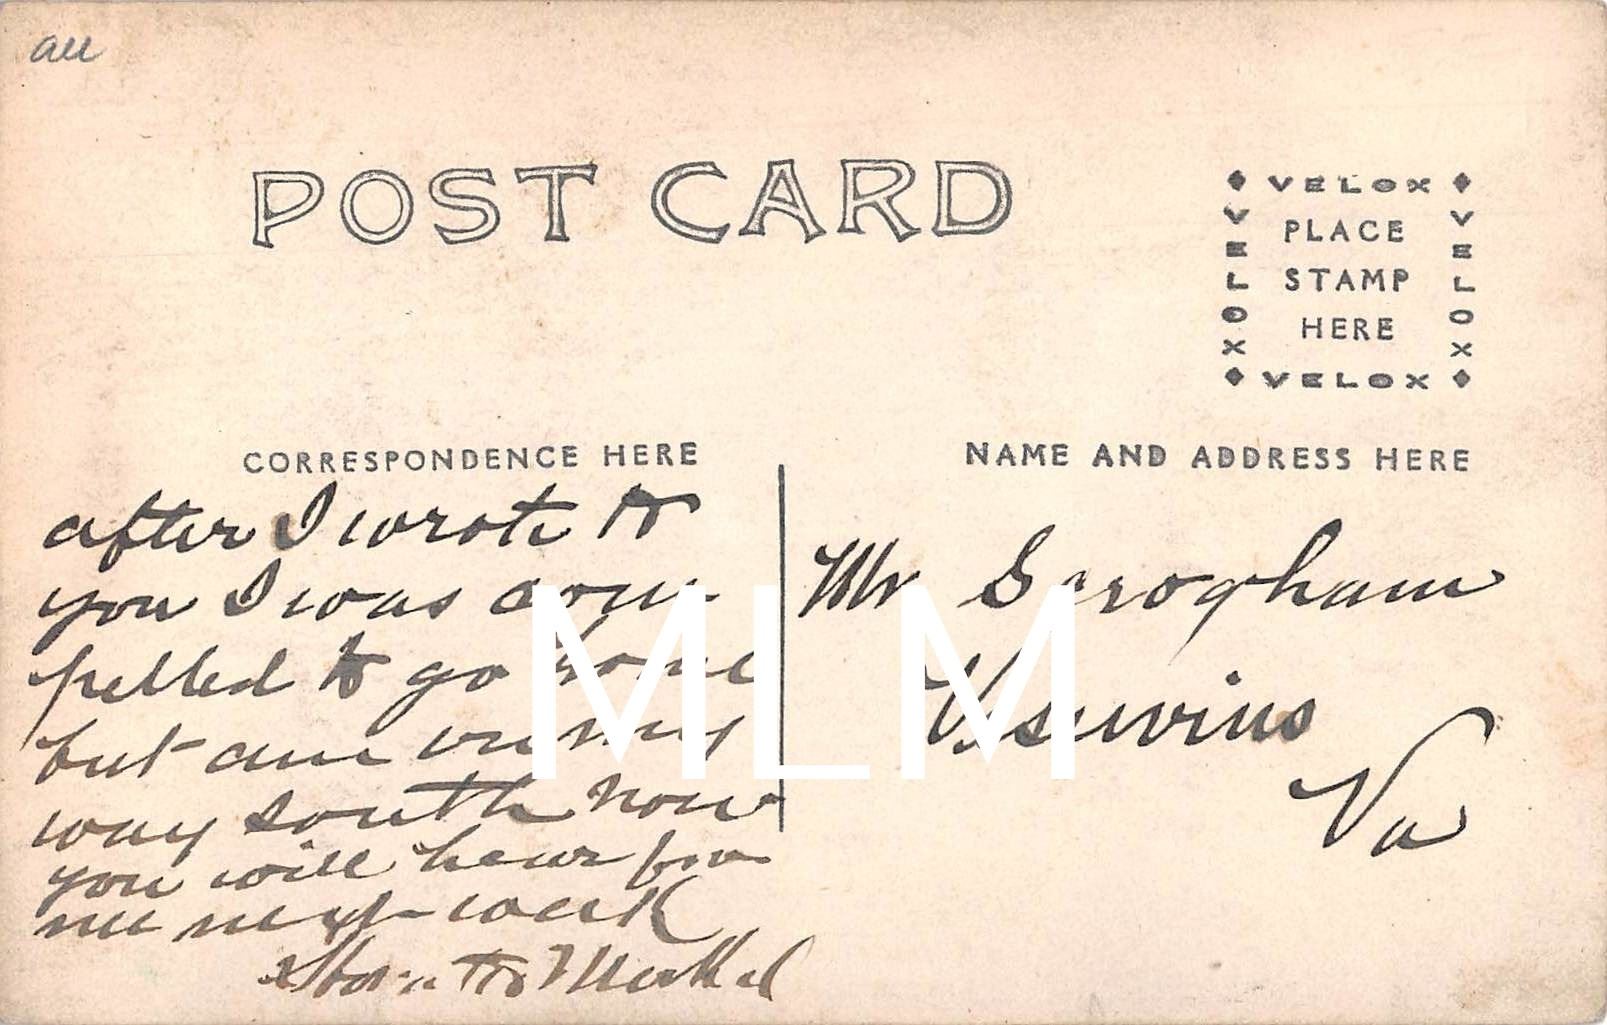 au
POST CARD
VELOX
VELOX
VELOX
PLACE
STAMP
HERE
VELOX
CORRESPONDENCE HERE
NAME AND ADDRESS HERE
after I wrote to
you I was com
pelled to go home
but am on my
way south now
you will hear from
me next week
Mr Scrogham
Vesuvius
Va
MLM